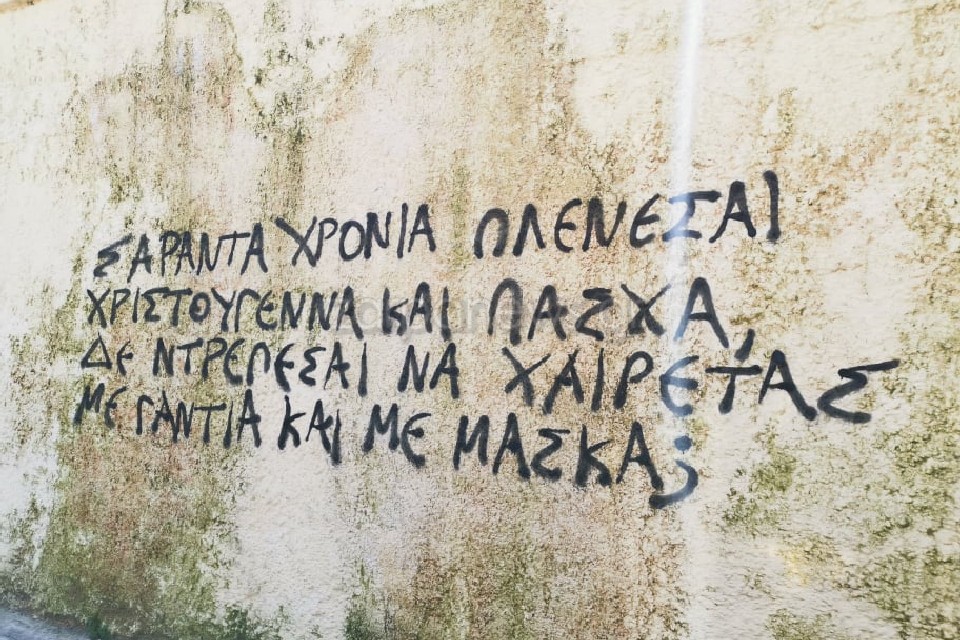 ΣΑΡΑΝΤΑ ΧΡΟΝΙΑ ΠΛΕΝΕΣΑΙ
ΧΡΙΣΤΟΥΓΕΝΝΑ ΚΑΙ ΠΑΣΧΑ,
ΔΕ ΝΤΡΕΠΕΣΑΙ ΝΑ ΧΑΙΡΕΤΑΣ
ΜΕ ΓΑΝΤΙΑ ΚΑΙ ΜΕ ΜΑΣΚΑ;